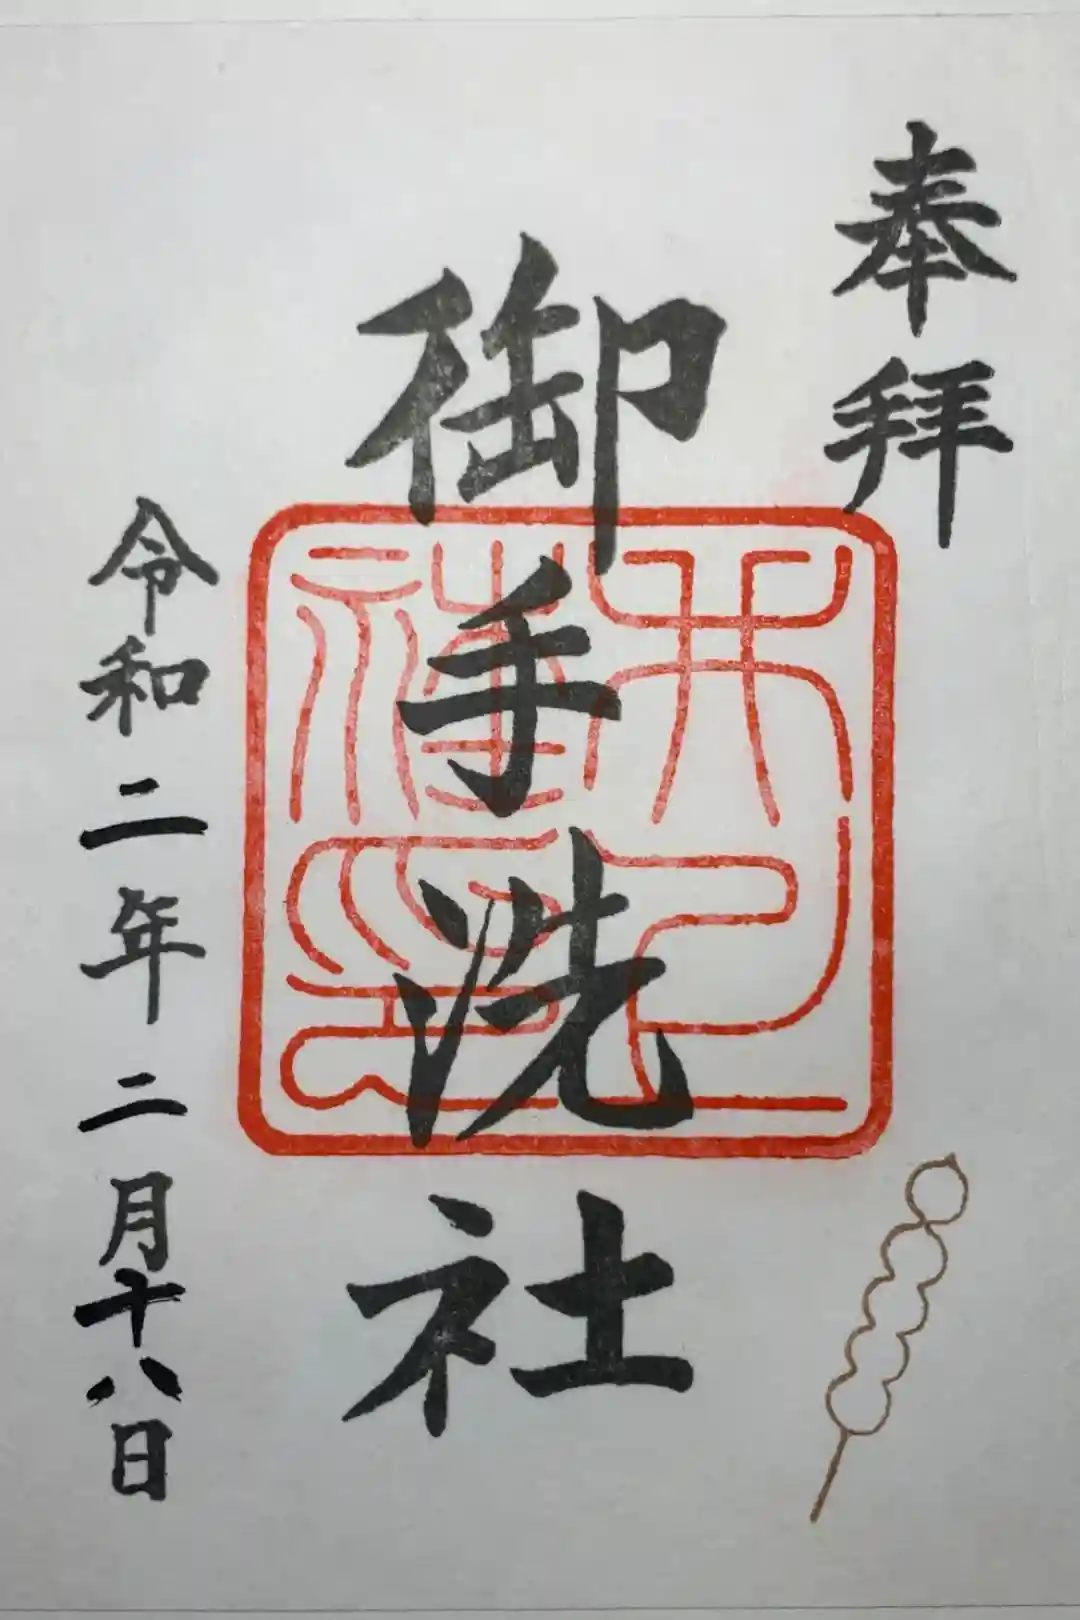 奉拝
御手洗社
令和二年二月十八日